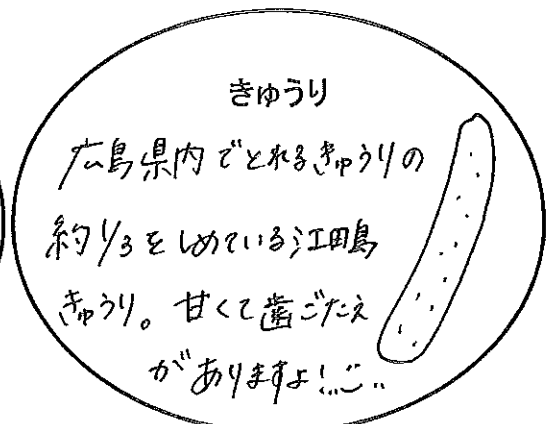 きゅうり
広島県内でとれるきゅうりの
約1/3をしめている江田島
きゅうり。甘くて歯ごたえ
がありますよ!